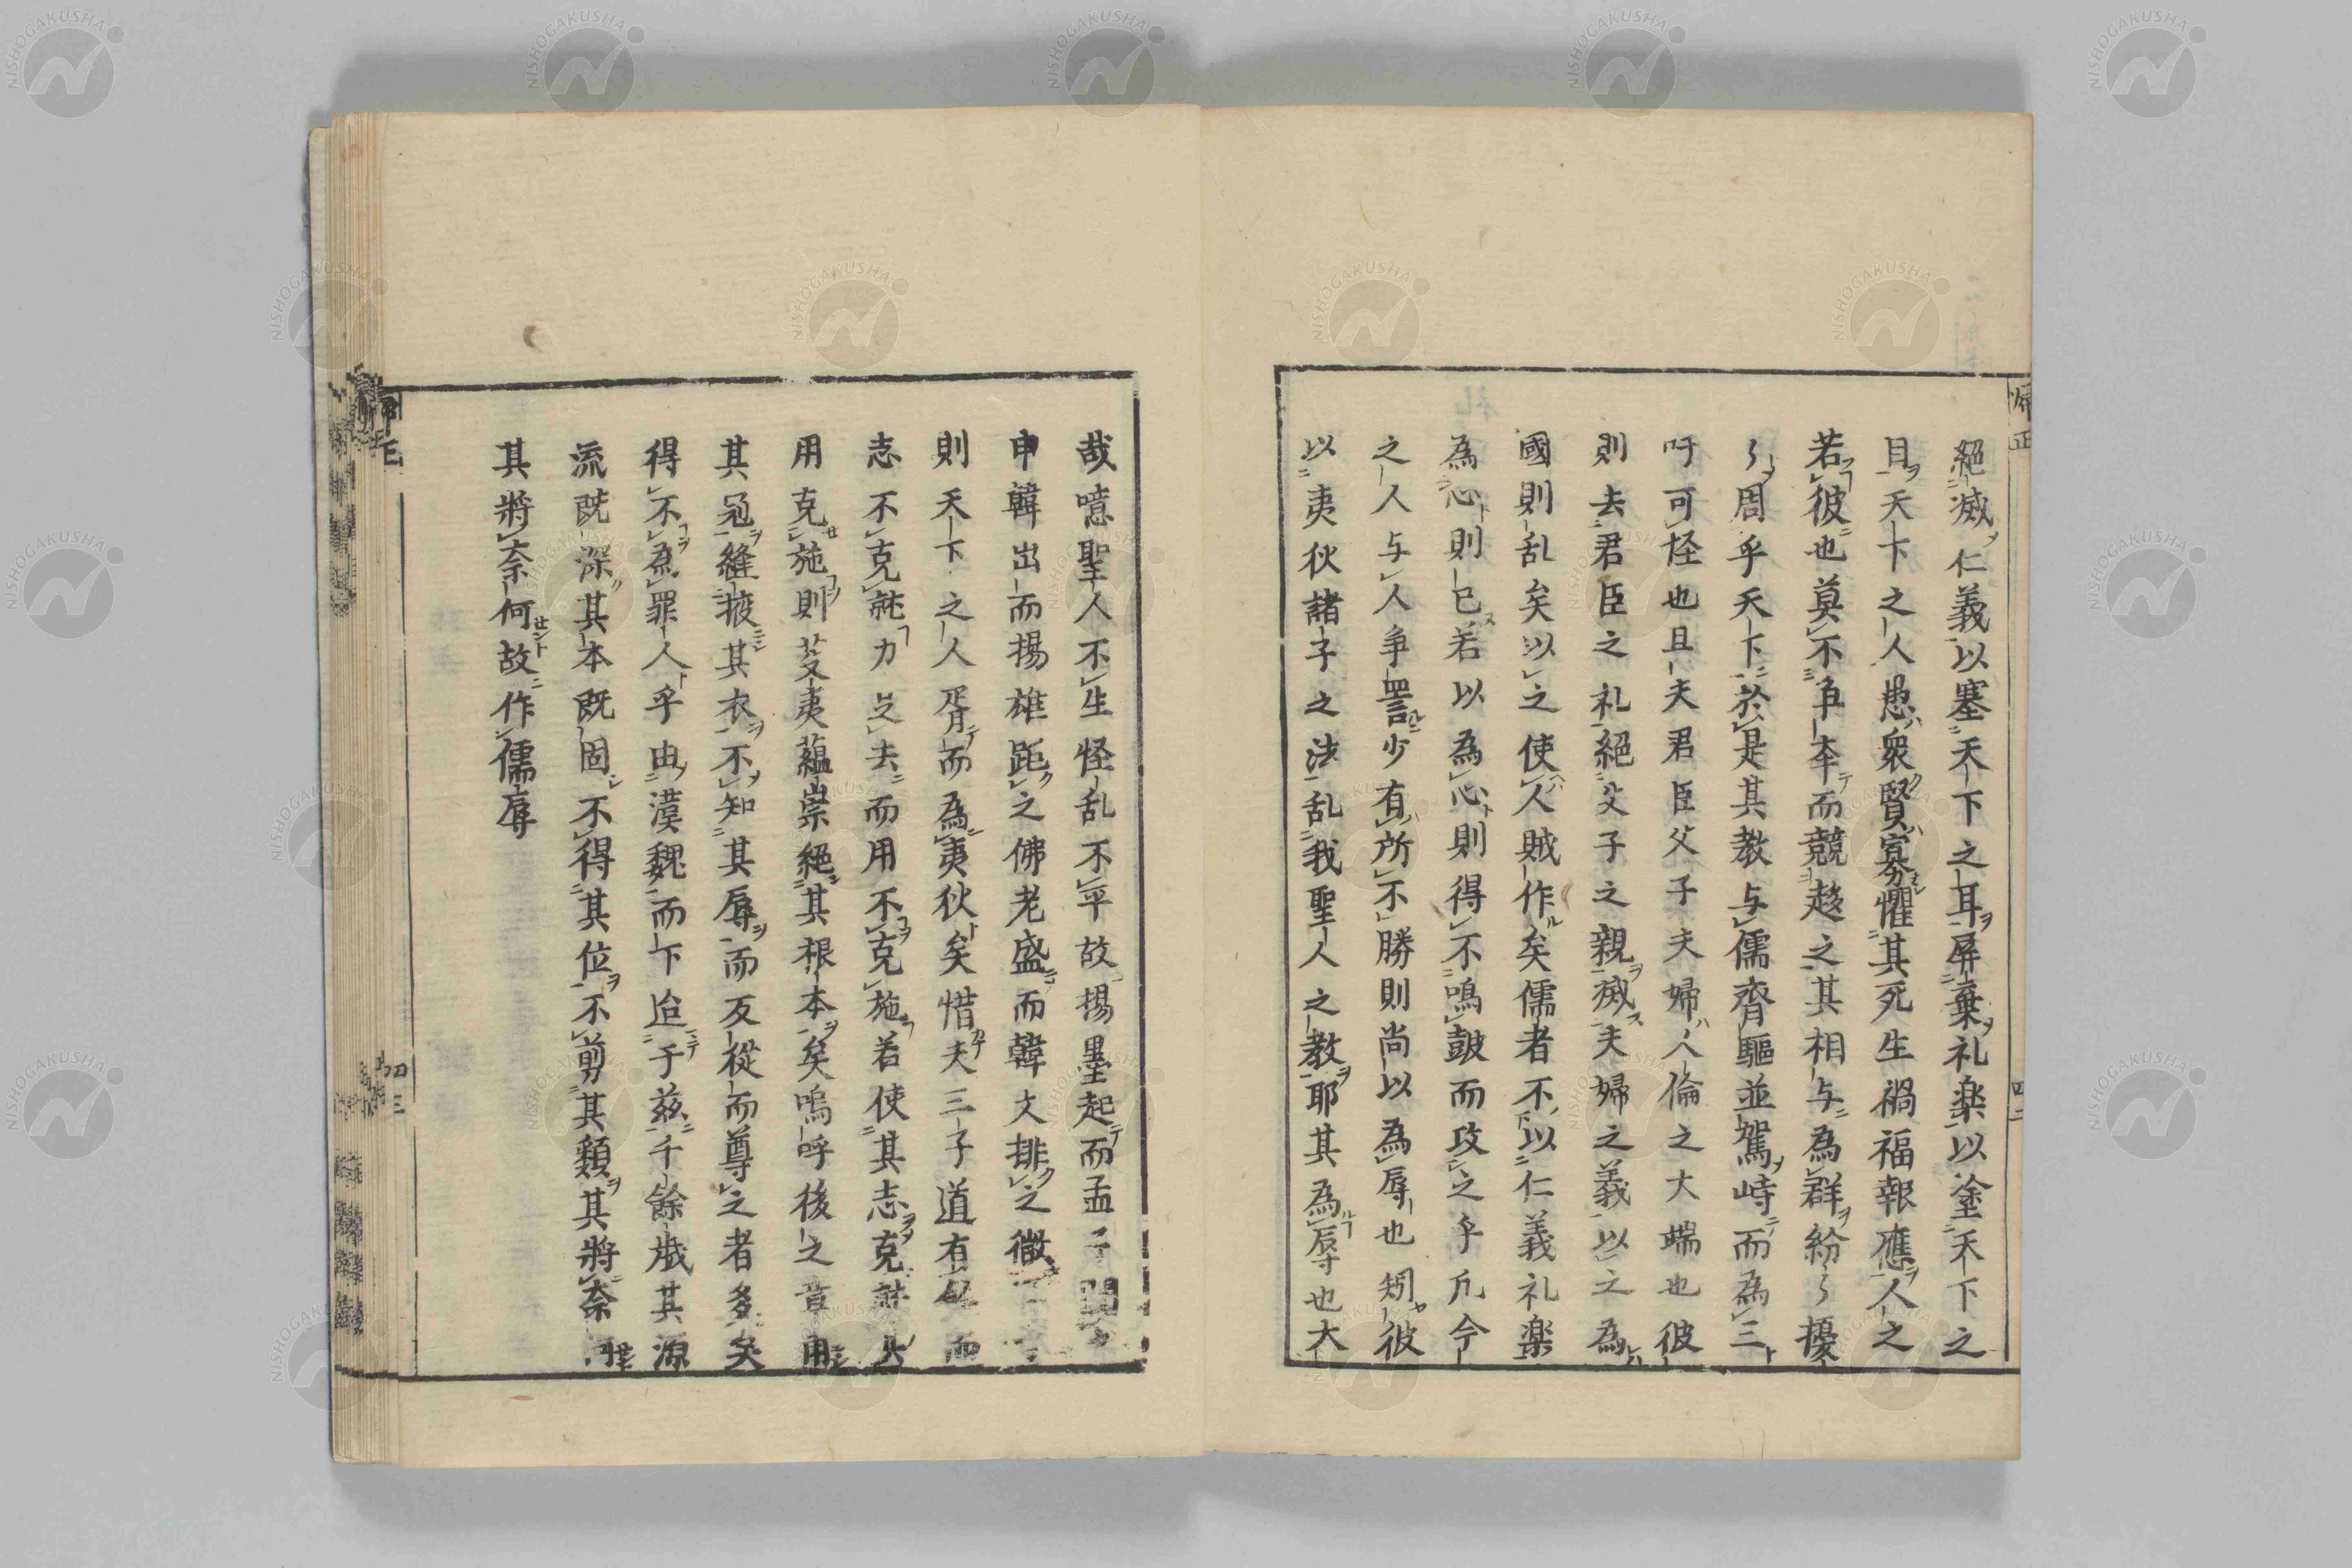 絕滅仁義以塞天下之耳屏棄礼楽以塗天下之
目天下之人愚衆賢寡懼其死生禍福報應人之
若彼也莫不争奉而競趍之其相与為群紛〻擾
〻周乎天下於是其教与儒齊驅並駕峙而為三
吁可怪也且夫君臣父子夫婦人倫之大端也彼
則去君臣之礼絕父子之親滅夫婦之義以之為
國則乱矣以之使人賊作矣儒者不以仁義礼楽
為心則已若以為心則得不鳴鼓而攻之乎凡今
之人与人争詈少有所不勝則尚以為辱也矧彼
以夷狄諸子之法乱我聖人之教耶其為辱也大
哉噫聖人不生怪乱不平故揚墨起而孟子闢
申韓出而揚雄距之佛老盛而韓文排之微
則天下之人胥而為夷狄矣惜夫三子道有而
志不克就力之去而用不克施若使其志克就其
用克施則芟夷蘊崇絕其根本矣嗚呼後之章用
其冠縫掖其衣不知其辱而反從而尊之者多矣
得不為罪人乎由漢魏而下迨于茲千餘歲其源
流既深其本既固不得其位不剪其類其將奈何
其將奈何故作儒辱
帰正
四二
帰正
四三
NISHOGAKUSHA